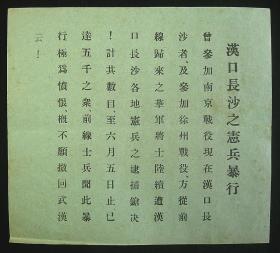 漢口長沙之憲兵暴行
曾參加南京戰役現在漢口長
沙者、及參加徐州戰役、方從前
線歸來之華軍將士陸續遭漢
口長沙各地憲兵之逮捕鎗决
！計其數目至六月五日止已
達五千之衆、前線士兵聞此暴
行極爲憤恨、概不願撤回武漢
云！